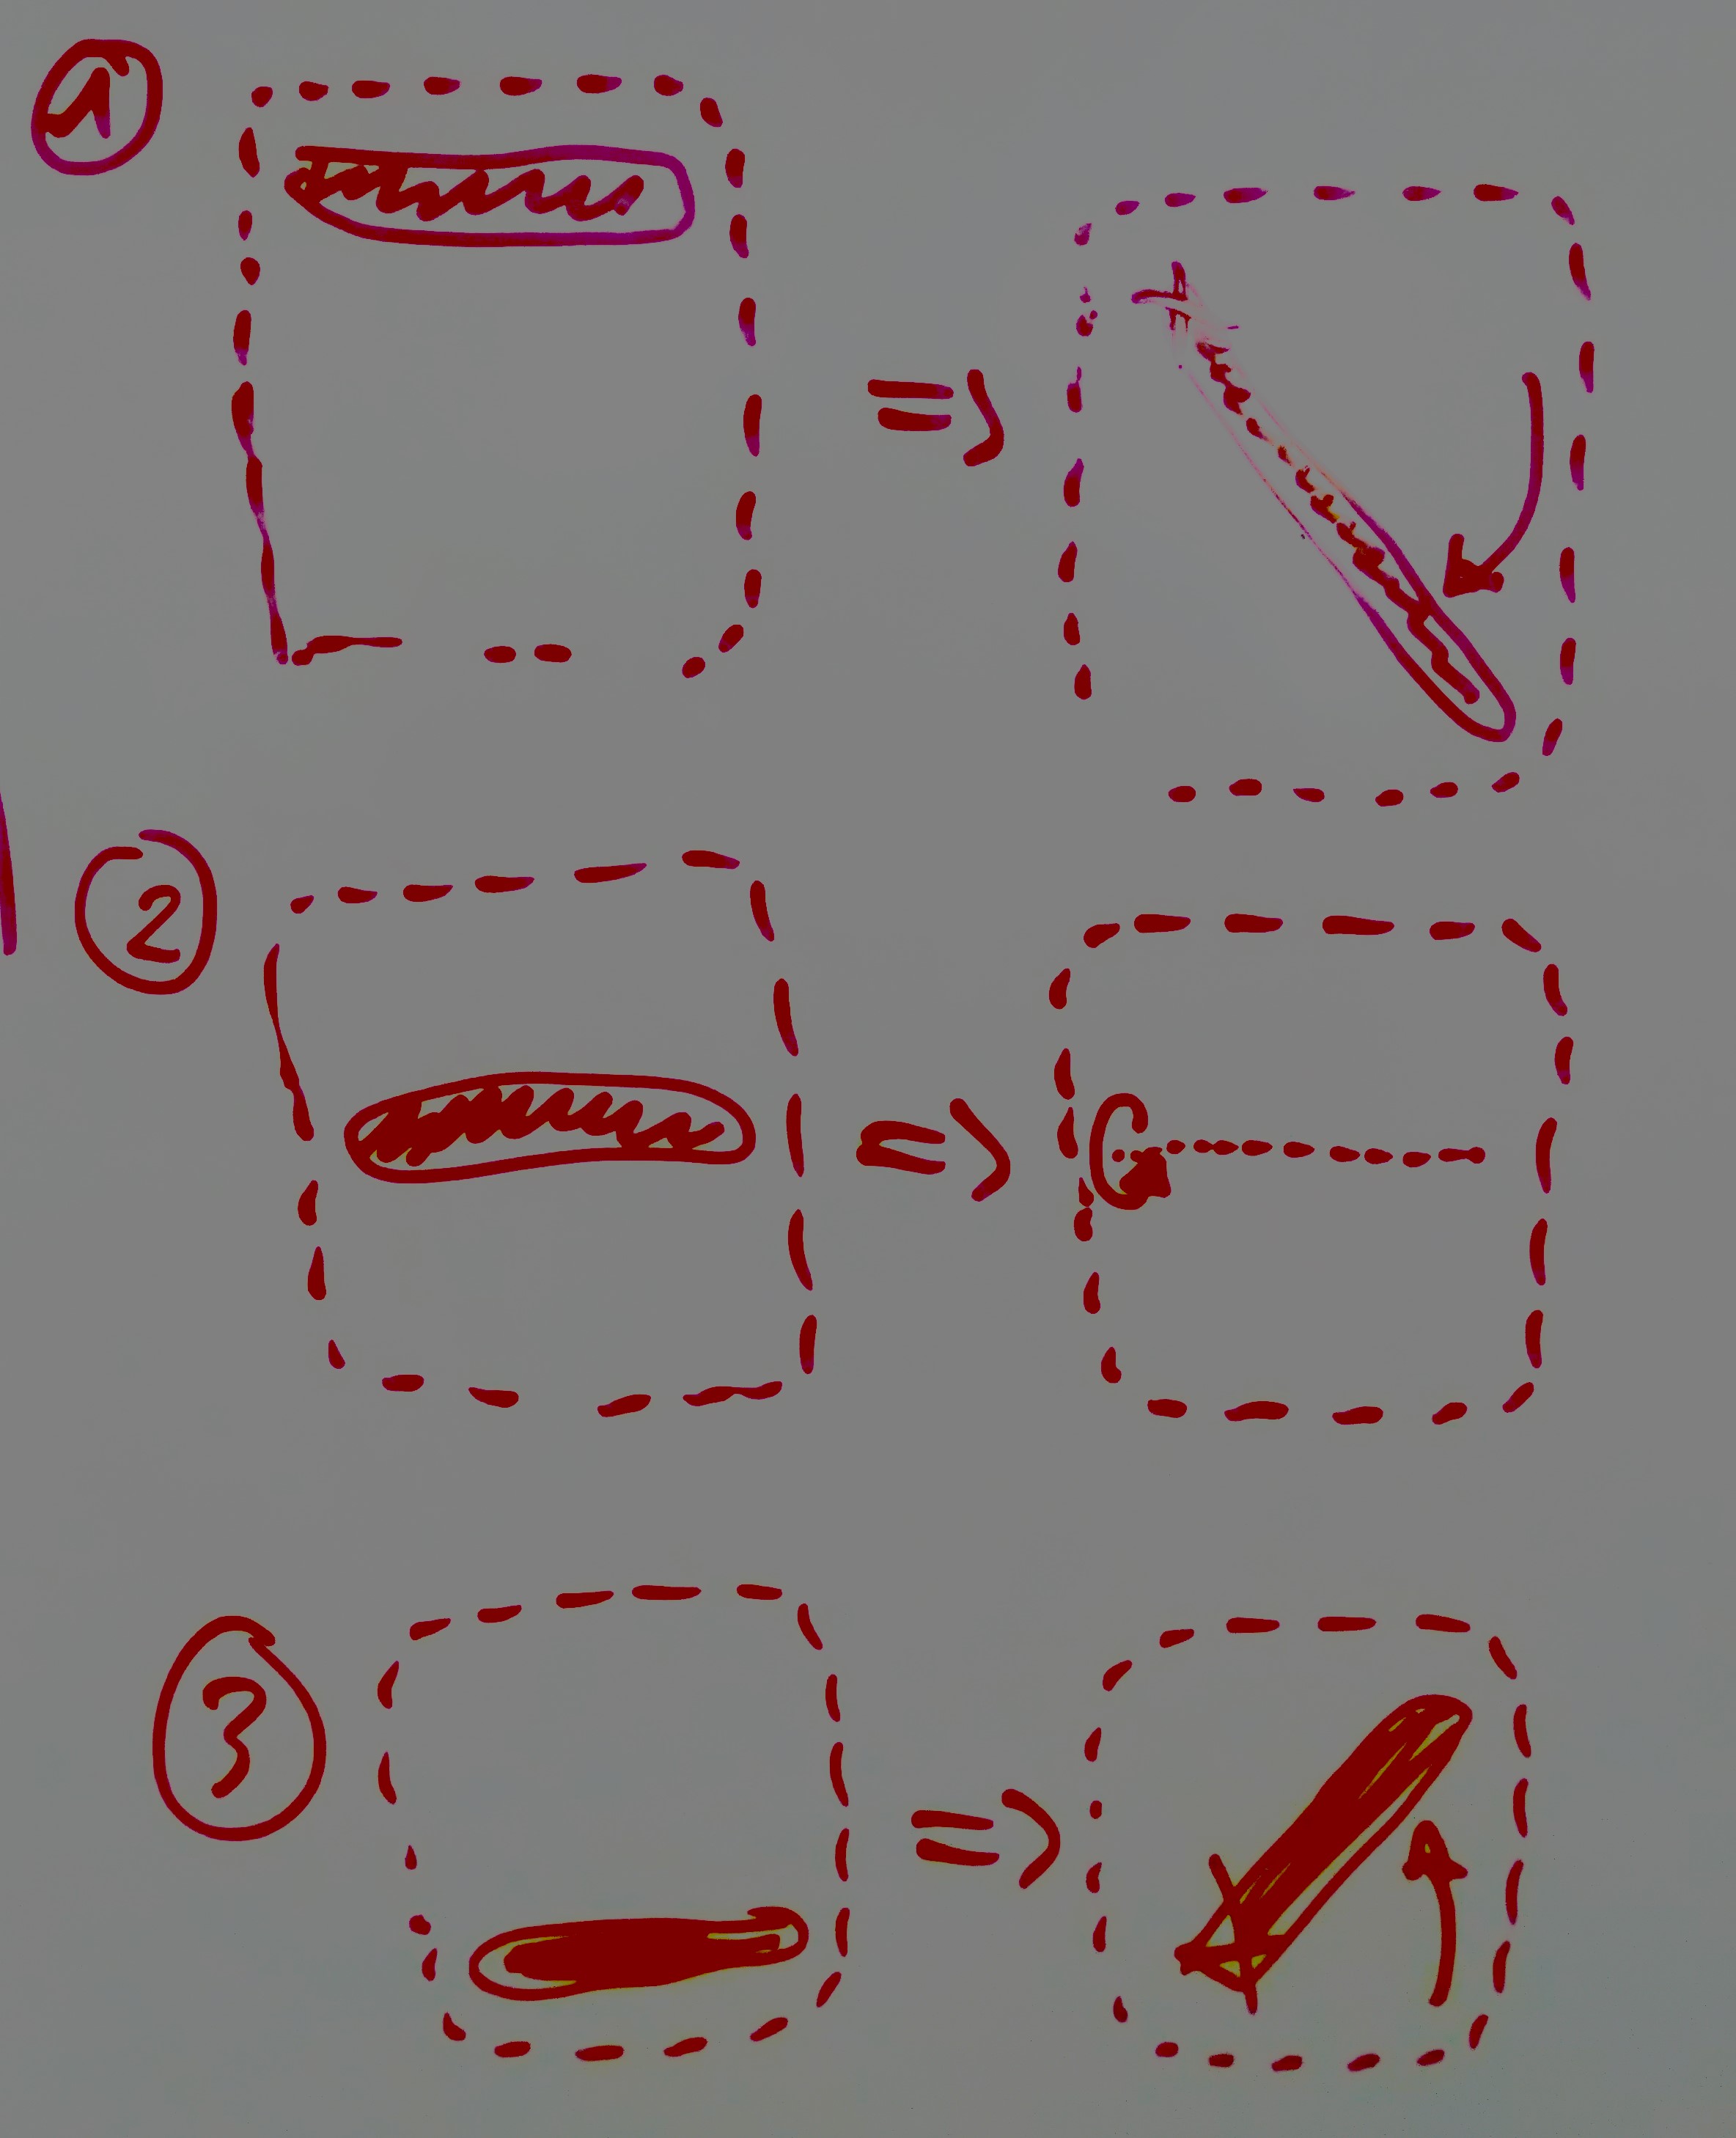 1
=>
2
=>
3
=>